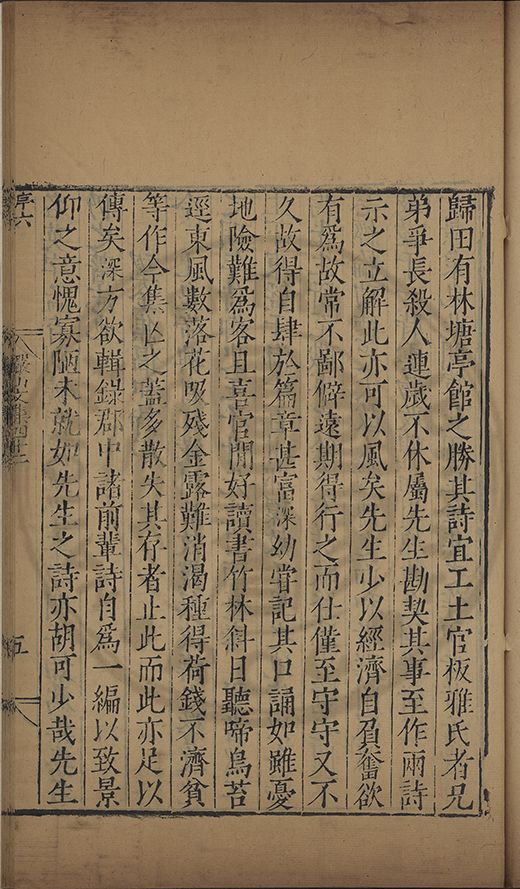 歸田有林塘亭館之勝其詩宜工土官板雅氏者兄
弟爭長殺人連歲不休屬先生勘契其事至作兩詩
示之立解此亦可以風矣先生少以經濟自負奮欲
有爲故常不鄙僻遠期得行之而仕僅至守守又不
久故得自肆於篇章甚富深幼嘗記其口誦如雖憂
地險難爲客且喜官閒好讀書竹林斜日聽啼鳥苔
逕東風數落花吸殘金露難消渴種得荷錢不濟貧
等作今集亡之蓋多散失其存者止此而此亦足以
傳矣深方欲輯錄郡中諸前輩詩自爲一編以致景
仰之意愧寡陋未就如先生之詩亦胡可少哉先生
序六
五